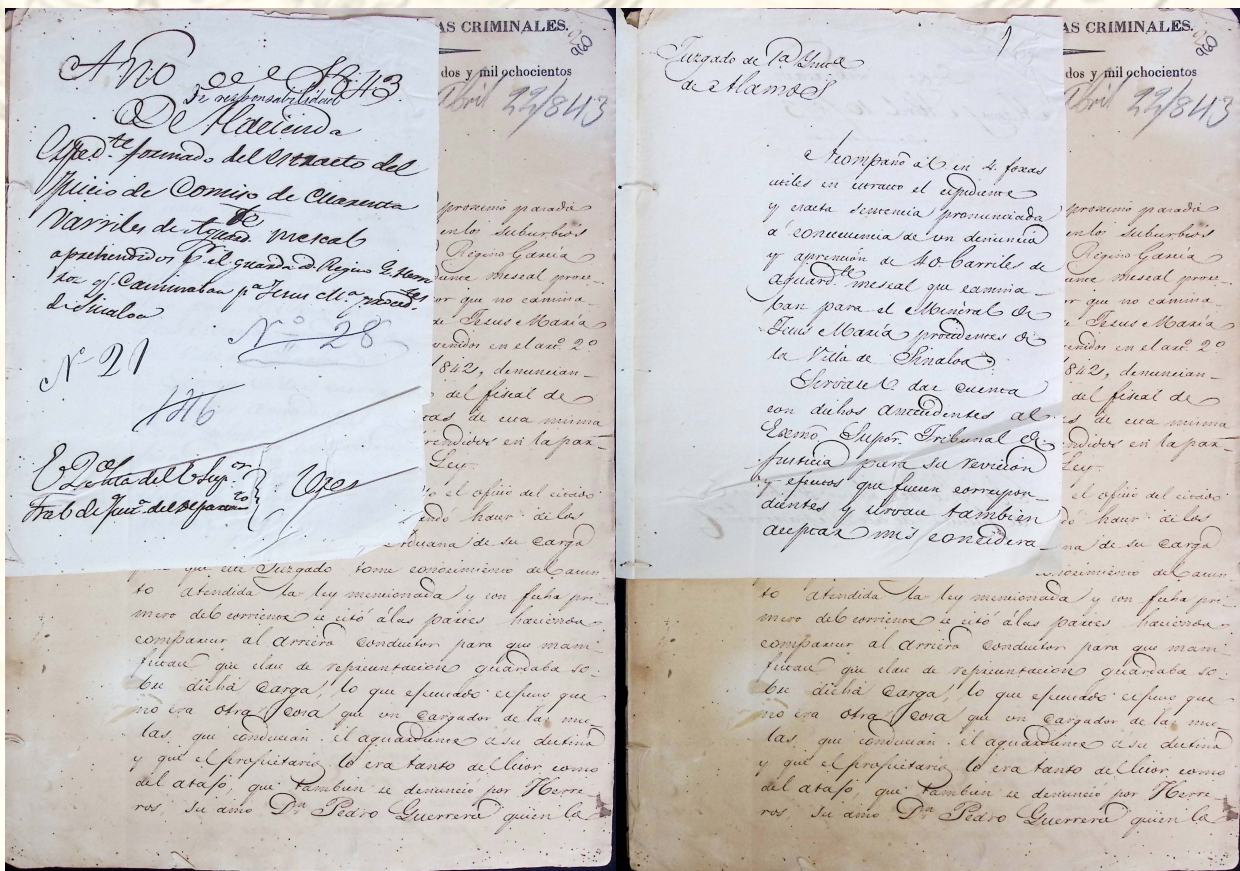 Año de 1843.
De responsabilidad
De Hacienda
Exped.te formado del extracto del
Juicio de Comiso de Cuarenta
Varriles de Aguard.te mescal
aprehendidos p.r el guarda D. Regino G.
q.e Caminaban p.a Jesus M.a proced.tes
de Sinaloa
N.o 28
N 21
116
Trib. de Just.a del Departam.to
AS CRIMINALES.
dos y mil ochocientos
Abril 22/843
proximo pasado
en los suburbios
Regino Garcia
mescal proce-
or que no camina-
Jesus Maria
en el art.o 2.o
1842, denuncian-
del fiscal de
de esta misma
rendidos en la par-
Ley.
el oficio del citado
de los
aduana de su cargo
que este Juzgado tome conocimiento del asun-
to atendida la ley mencionada y con fecha pri-
mero del corriente se citó á las partes haciendo
comparecer al arriero conductor para que mani-
festase que clase de representacion guardaba so-
bre dicha carga, lo que ejecutado espuso que
no era otra cosa que un cargador de las mu-
las que conducian el aguardiente a su destino
y que el propietario lo era tanto del licor como
del atajo, que tambien se denunció por Herre-
ros, su amo D.n Pedro Guerrero quien lo
Juzgado de 1a Ynst.a
de Alamos
1
Acompaño á U. en 4. foxas
utiles en estracto el espediente
y exacta sentencia pronunciada
á consecuencia de un denuncio
y aprencion de 40. barriles de
aguard.te mescal que camina-
ban para el Mineral de
Jesus Maria procidentes de
la Villa de Sinaloa.
Sirvase U. dar cuenta
con dichos antecedentes al
Exemo. Supor. Tribunal de
Justicia para su revicion
y efectos que fuesen correspon-
dientes y sirvase tambien
aceptar mis concidera-
AS CRIMINALES.
dos y mil ochocientos
Abril 22/843
proximo pasado
en los suburbios
Regino Garcia
mescal proce-
or que no camina-
Jesus Maria
en el art.o 2.o
1842, denuncian-
del fiscal de
de esta misma
rendidos en la par-
Ley.
el oficio del citado
de los
de su cargo
conocimiento del asun-
to atendida la ley mencionada y con fecha pri-
mero del corriente se citó á las partes haciendo
comparecer al arriero conductor para que mani-
festase que clase de representacion guardaba so-
bre dicha carga, lo que ejecutado espuso que
no era otra cosa que un cargador de las mu-
las que conducian el aguardiente a su destino
y que el propietario lo era tanto del licor como
del atajo, que tambien se denunció por Herre-
ros su amo D.n Pedro Guerrero quien lo